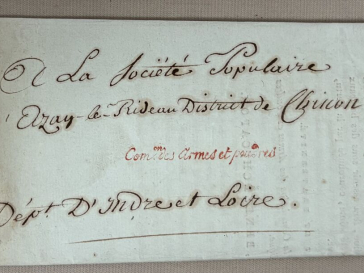 A La Société Populaire
d'Azay-le-Rideau District de Chinon
Com.on des Armes et poudres
Dép.t D'Indre et Loire.